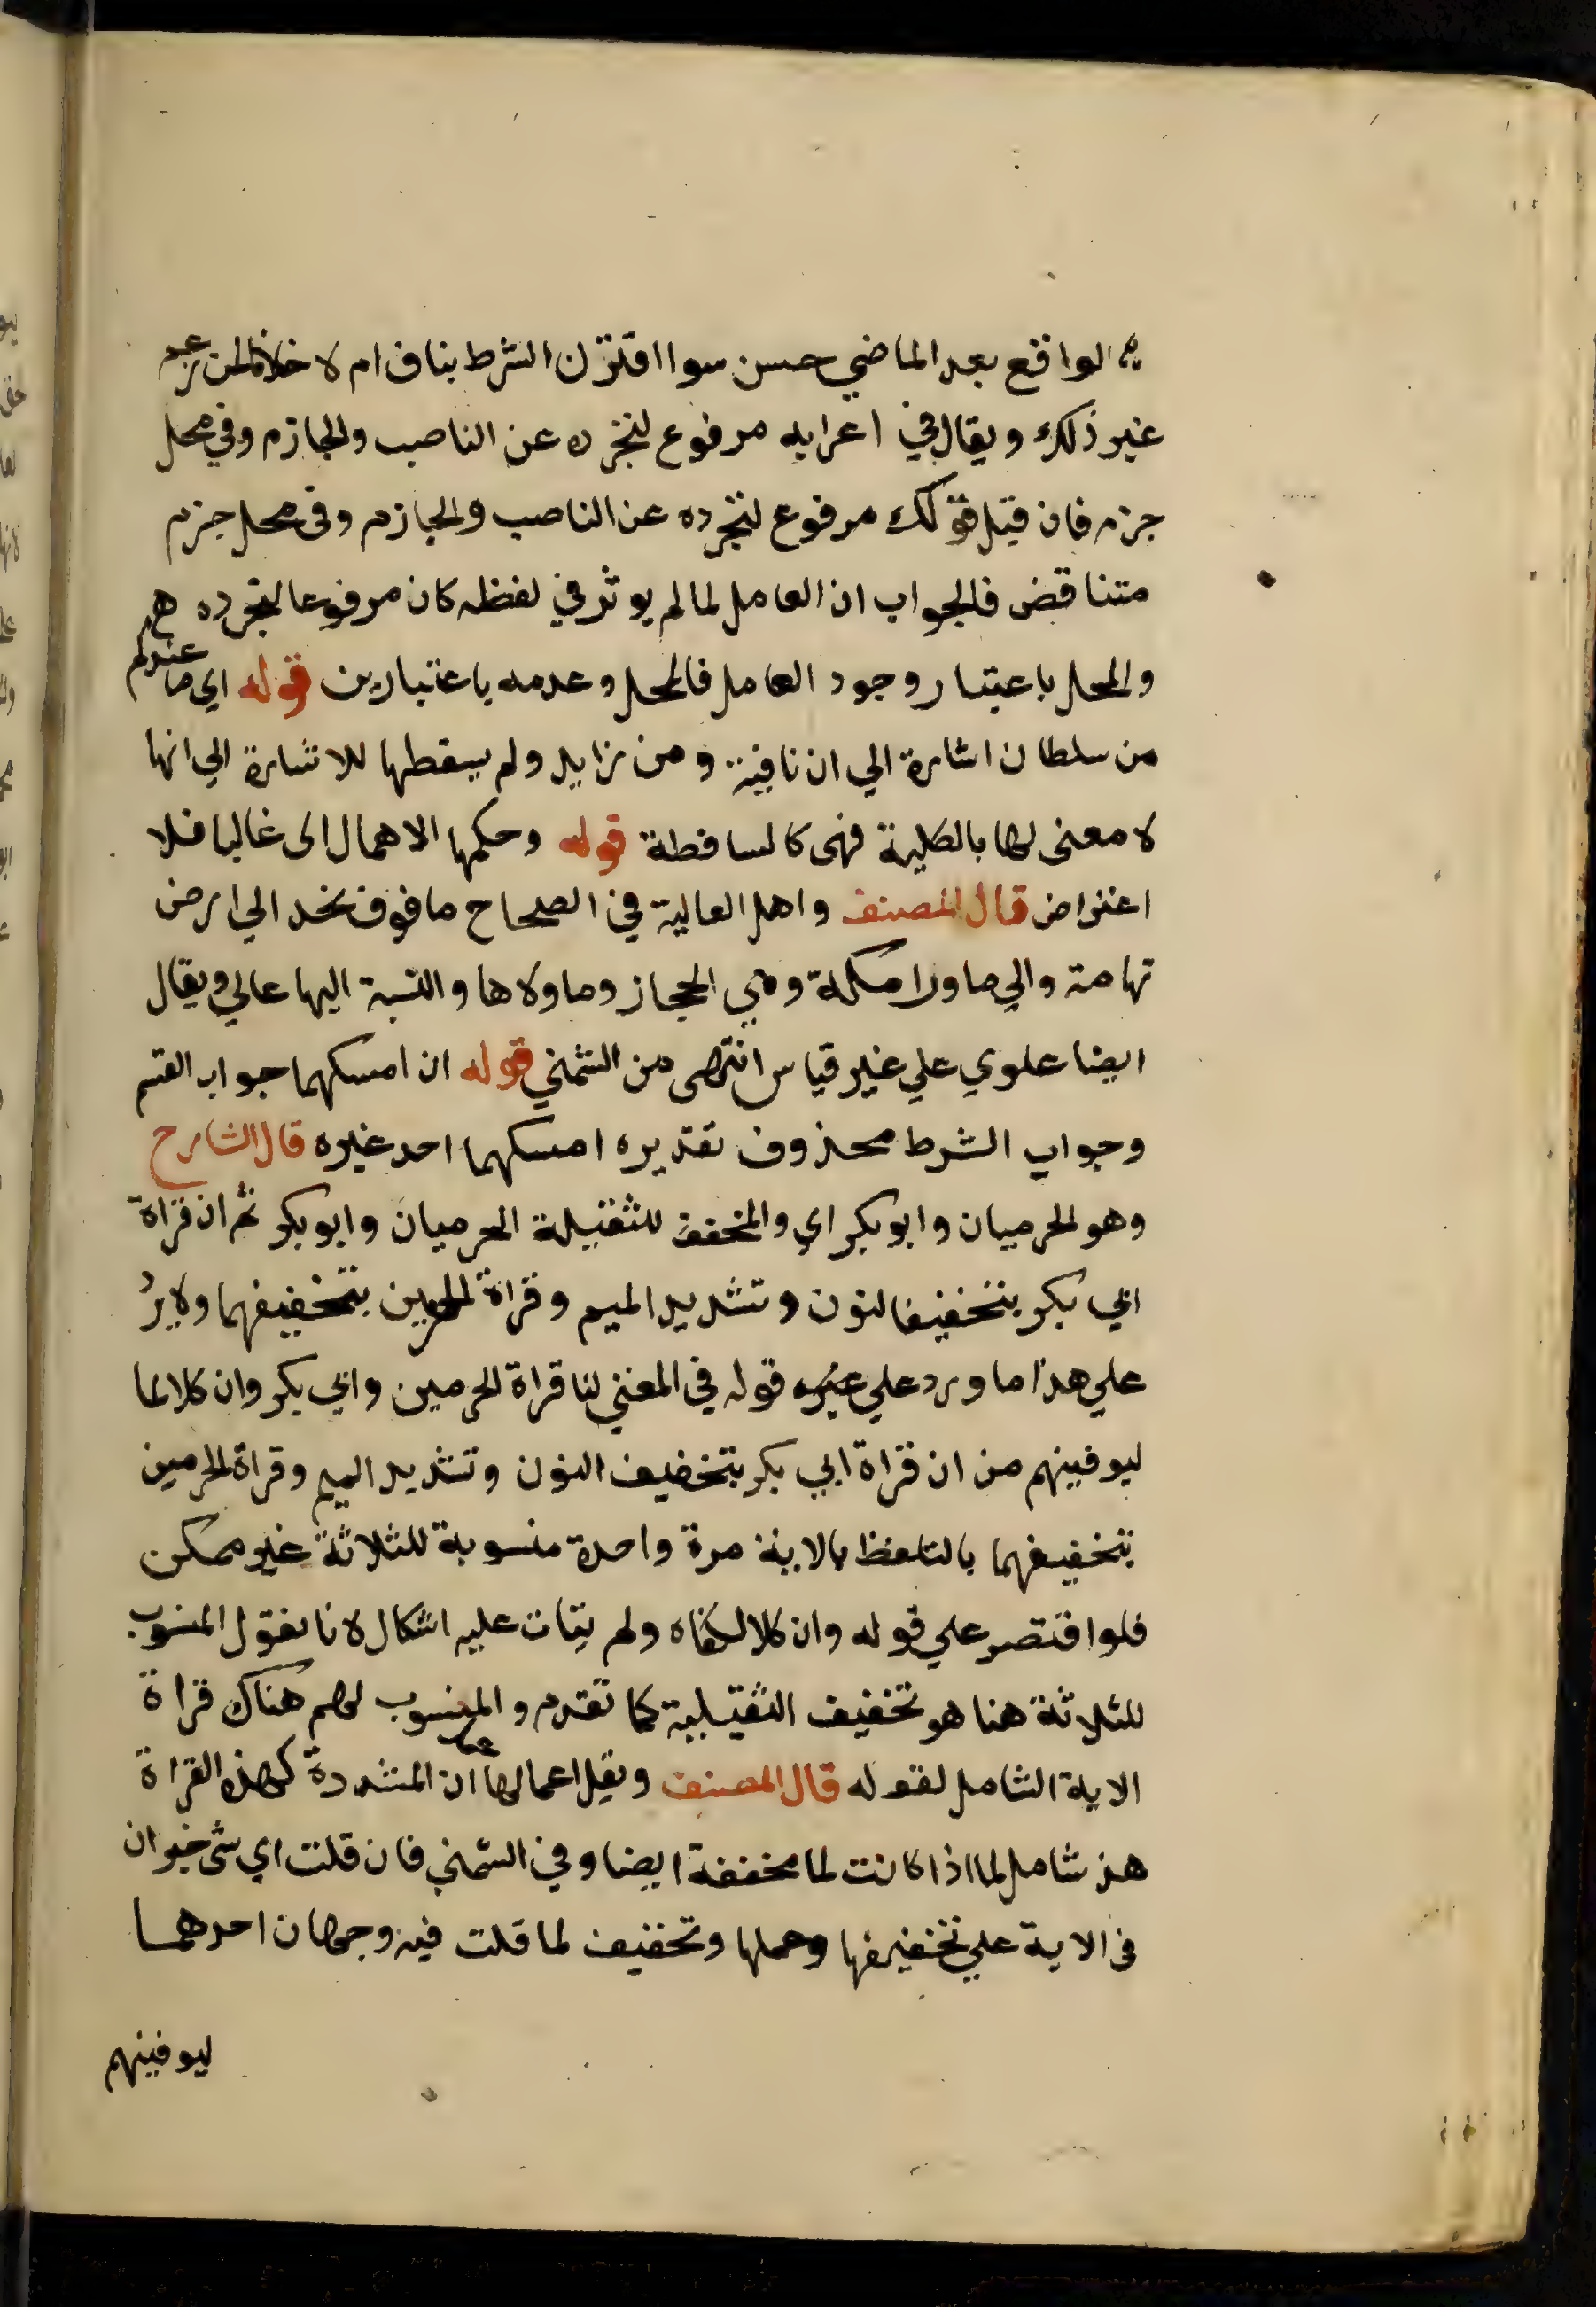 الواقع بعد الماضي حسن سوا اقترن الشرط بناف ام لا خلافا لمن زعم
غير ذلك ويقال في اعرابه مرفوع لتجرده عن الناصب والجازم وفي محل
جزم فان قيل قولك مرفوع لتجرده عن الناصب والجازم وفي محل جزم
متناقض فالجواب ان العامل لما لم يوثر في لفظه كان مرفوعا لتجرده
والمحل باعتبار وجود العامل فالمحل وعدمه باعتبارين قوله اي ما عندكم
من سلطان اشارة الي ان نافية ومن زايد ولم يسقطها للاشارة الي انها
لا معنى لها بالكلية فهى كالساقطة قوله وحكمها الاهمال اى غالبا فلا
اعتراض قال المصنف واهل العالية في الصحاح ما فوق نجد الي ارض
تهامة والي ما ورا مكة وهي الحجاز وما ولاها والنسبة اليها عالي ويقال
ايضا علوي علي غير قياس انتهى من الشمني قوله ان امسكهما جواب القسم
وجواب الشرط محذوف تقديره امسكهما احد غيره قال الشارح
وهو الحرميان وابو بكر اي والمخفف للثقيلة الحرميان وابو بكر ثم ان قراة
ابي بكر بتخفيف النون وتشديد الميم وقراة الحرميين بتخفيفهما ولا يرد
علي هذا ما ورد علي غيره قوله في المغني لنا قراة الحرمين وابي بكر وان كلا لما
ليوفينهم من ان قراة ابي بكر بتخفيف النون وتشديد الميم وقراة الحرمين
بتخفيفهما بالتلفظ بالاية مرة واحدة منسوبة للثلاثة غير ممكن
فلو اقتصر علي قوله وان كلا لكفاه ولم يتات عليه اشكال لانا نقول المنسوب
للثلاثة هنا هو تخفيف الثقيلية كما تقدم والمنسوب لهم هناك قراة
الاية الشامل لقوله قال المصنف ويقل اعمالها عمل ان المشددة كهذه القراة
هذ شامل لما اذا كانت لما مخففة ايضا وفي الشمني فان قلت اي شى خبر ان
فى الاية علي تخفيفها وعملها وتخفيف لما قلت فيه وجهان احدهما
ليوفينهم